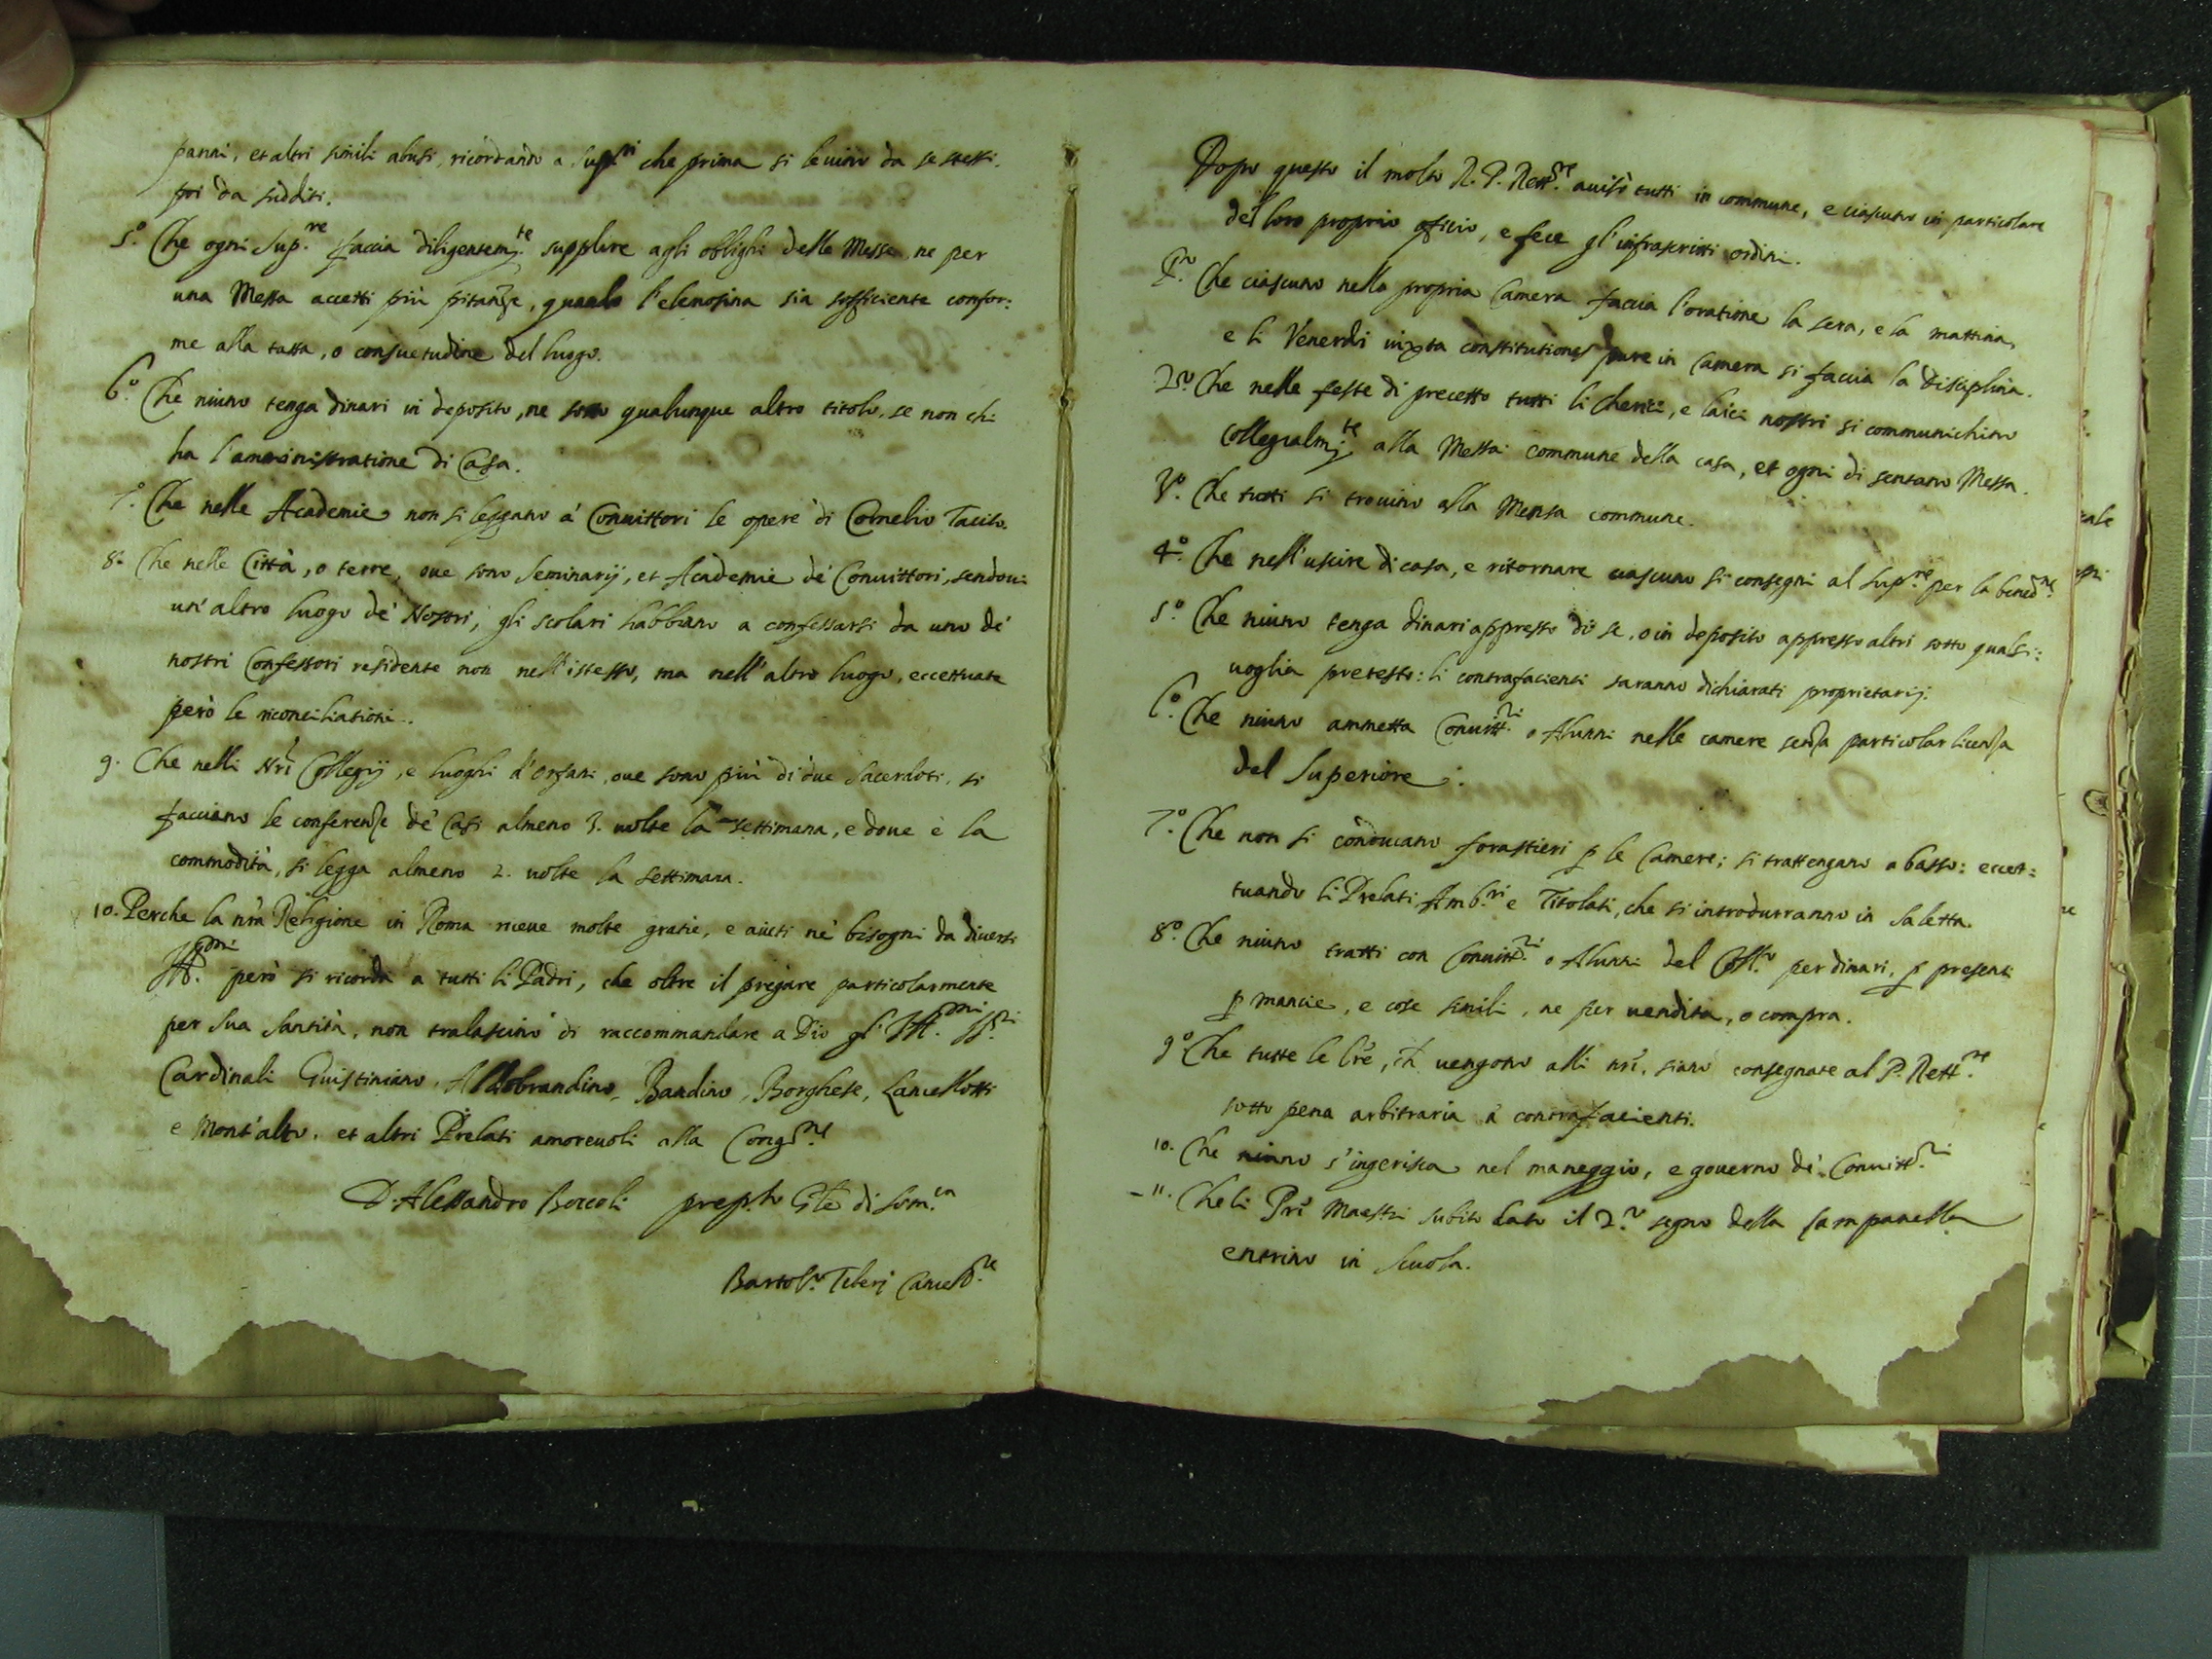 panni, et altri simili abusi, ricordando a Sup.ri che prima si levino da se stessi,
poi da sudditi.
5.º Che ogni Sup.re faccia diligentem.te supplire agli oblighi delle Messe, ne per
una Messa accetti più pitanze, quando l'elemosina sia sofficiente confor:
me alla tassa, o consuetudine del luogo.
6.º Che niuno tenga dinari in deposito, ne sotto qualunque altro titolo, se non chi
ha l'amministratione di Casa.
7.º Che nelle Academie non si leggano á Convittori le opere di Cornelio Tacito.
8.º Che nelle Città, o terre, ove sono Seminarij, et Academie dé Convittori, sendovi
un'altro luogo dé Nostri, gli scolari habbiano a confessarsi da uno dé
nostri Confessori residente non nell'istesso, ma nell'altro luogo, eccettuate
però le riconciliationi.
9. Che nelli Nri Collegij, e luoghi d'Orfani, ove sono più di due Sacerdoti, si
facciano le conferenze dé Casi almeno 3. volte la settimana, e dove è la
commodità, si legga almeno 2. volte la settimana.
10. Perche la nra Religione in Roma riceve molte gratie, e aiuti né bisogni da diversi
Ill.mi però si ricorda a tutti li Padri, che oltre il pregare particolarmente
per Sua Santità, non tralascino di raccommandare a Dio gl' Ill.mi SS.ri
Cardinali Giustiniano, Aldobrandino, Bandino, Borghese, Lancellotti
e Mont'alto, et altri Prelati amorevoli alla Cong.ne
D. Alessandro Boccoli prep.to Gñle di Som.ca
Bartol.o Tiberj Cancell.re
Dopo questo il molto R. P. Rett.re avisò tutti in commune, e ciascuno in particolare
del loro proprio officio, e fece gl'infrascritti ordini.
P.o Che ciascuno nella propria Camera faccia l'oratione la sera, e la mattina,
e li Venerdì iuxta constitutiones pure in Camera si faccia la disciplina.
2.o Che nelle feste di precetto tutti li cherici, e laici nostri si communichino
collegialm.te alla Messa commune della casa, et ogni dì sentano Messa.
3.º Che tutti si trovino alla Mensa commune.
4.º Che nell'uscire di casa, e ritornare ciascuno si consegni al Sup.re per la bened.ne
5.º Che niuno tenga dinari appresso di se, o in deposito appresso altri sotto qualsi:
voglia pretesto: li contrafacienti saranno dichiarati proprietarij.
6.º Che niuno ammetta Convitt.ri o Alunni nelle camere senza particolar licenza
del Superiore.
7.º Che non si conducano forastieri p le Camere; si trattengano a basso: eccet:
tuando li Prelati, Amb.ri e Titolati, che si introdurranno in Saletta.
8.º Che niuno tratti con Convitt.ri o Alunni del Coll.o per dinari, p presenti
p mancie, e cose simili, ne per vendita, o compra.
9.º Che tutte le lre, ch vengono alli nri, siano consegnate al P. Rett.re
sotto pena arbitraria á contrafacienti.
10. Che niuno s'ingerisca nel maneggio, e governo dé Convitt.ri
11. Che li Pri Maestri subito dato il 2.o segno della Campanella
entrino in Scuola.